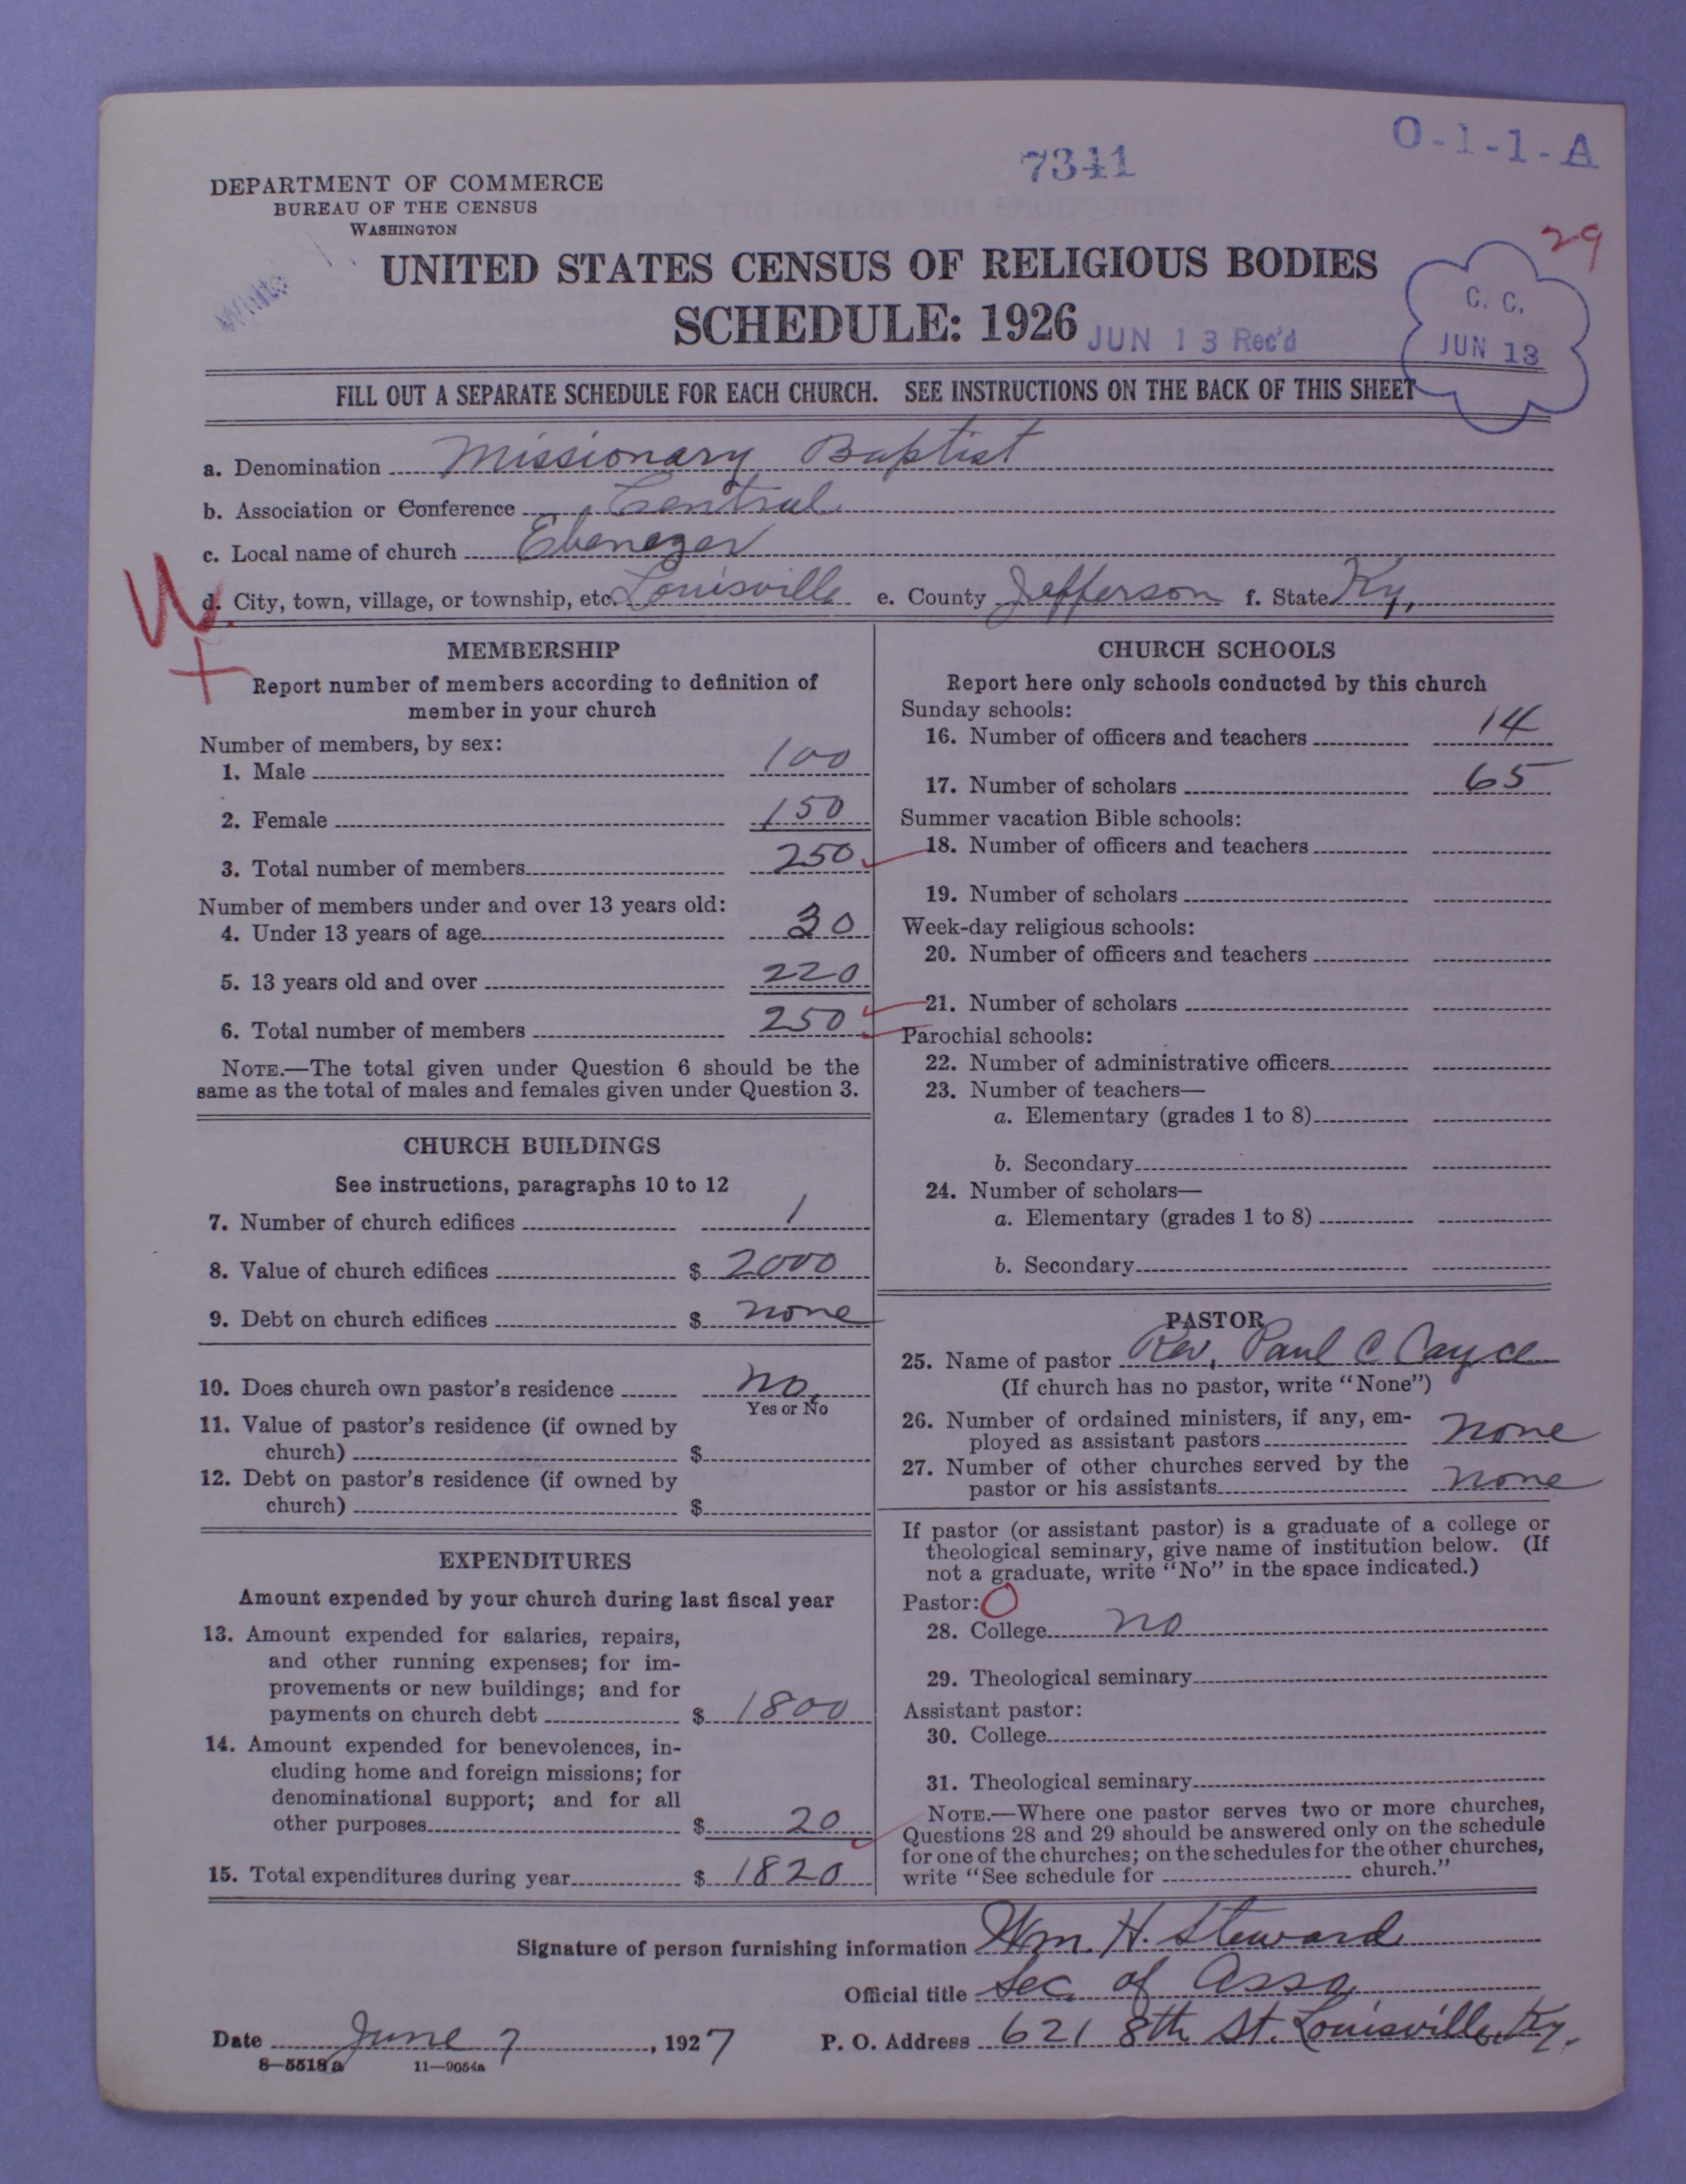 7341
O-1-1-A
DEPARTMENT OF COMMERCE
BUREAU OF THE CENSUS
WASHINGTON
29
White
UNITED STATES CENSUS OF RELIGIOUS BODIES
SCHEDULE: 1926
JUN 13 Rec'd
C. C.
JUN 13
FILL OUT A SEPARATE SCHEDULE FOR EACH CHURCH. SEE INSTRUCTIONS ON THE BACK OF THIS SHEET
a. Denomination Missionary Baptist
b. Association or Conference Central
c. Local name of church Ebenezer
d. City, town, village, or township, etc. Louisville e. County Jefferson f. State Ky,
MEMBERSHIP
Report number of members according to definition of
member in your church
Number of members, by sex:
1. Male 100
2. Female 150
3. Total number of members 250
Number of members under and over 13 years old:
4. Under 13 years of age 30
5. 13 years old and over 220
6. Total number of members 250
NOTE.—The total given under Question 6 should be the
same as the total of males and females given under Question 3.
CHURCH BUILDINGS
See instructions, paragraphs 10 to 12
7. Number of church edifices 1
8. Value of church edifices $ 2000
9. Debt on church edifices $ none
10. Does church own pastor's residence no.
Yes or No
11. Value of pastor's residence (if owned by
church) $
12. Debt on pastor's residence (if owned by
church) $
EXPENDITURES
Amount expended by your church during last fiscal year
13. Amount expended for salaries, repairs,
and other running expenses; for im-
provements or new buildings; and for
payments on church debt $ 1800
14. Amount expended for benevolences, in-
cluding home and foreign missions; for
denominational support; and for all
other purposes $ 20
15. Total expenditures during year $ 1820
CHURCH SCHOOLS
Report here only schools conducted by this church
Sunday schools:
16. Number of officers and teachers 14
17. Number of scholars 65
Summer vacation Bible schools:
18. Number of officers and teachers
19. Number of scholars
Week-day religious schools:
20. Number of officers and teachers
21. Number of scholars
Parochial schools:
22. Number of administrative officers
23. Number of teachers—
a. Elementary (grades 1 to 8)
b. Secondary
24. Number of scholars—
a. Elementary (grades 1 to 8)
b. Secondary
PASTOR
25. Name of pastor Rev. Paul C Cayce
(If church has no pastor, write "None")
26. Number of ordained ministers, if any, em-
ployed as assistant pastors none
27. Number of other churches served by the
pastor or his assistants none
If pastor (or assistant pastor) is a graduate of a college or
theological seminary, give name of institution below. (If
not a graduate, write "No" in the space indicated.)
Pastor:
28. College no
29. Theological seminary
Assistant pastor:
30. College
31. Theological seminary
NOTE.—Where one pastor serves two or more churches,
Questions 28 and 29 should be answered only on the schedule
for one of the churches; on the schedules for the other churches,
write "See schedule for church."
Signature of person furnishing information Wm. H. Steward
Official title Sec. of Asso
Date June 7, 1927 P. O. Address 621 8th St. Louisville, Ky.
8—5518 a 11—9054a